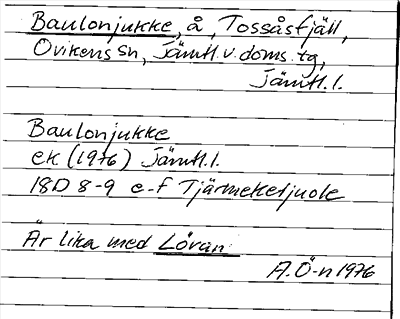 Baulonjukke, å, Tossåsfjäll,
Ovikens sn, Jämtl. v. doms. tg,
Jämtl. l.
Baulonjukke
ek (1976) Jämtl. l.
18D 8-9 e-f Tjärmeketjuole
Är lika med Lövan
A.Ö-n 1976